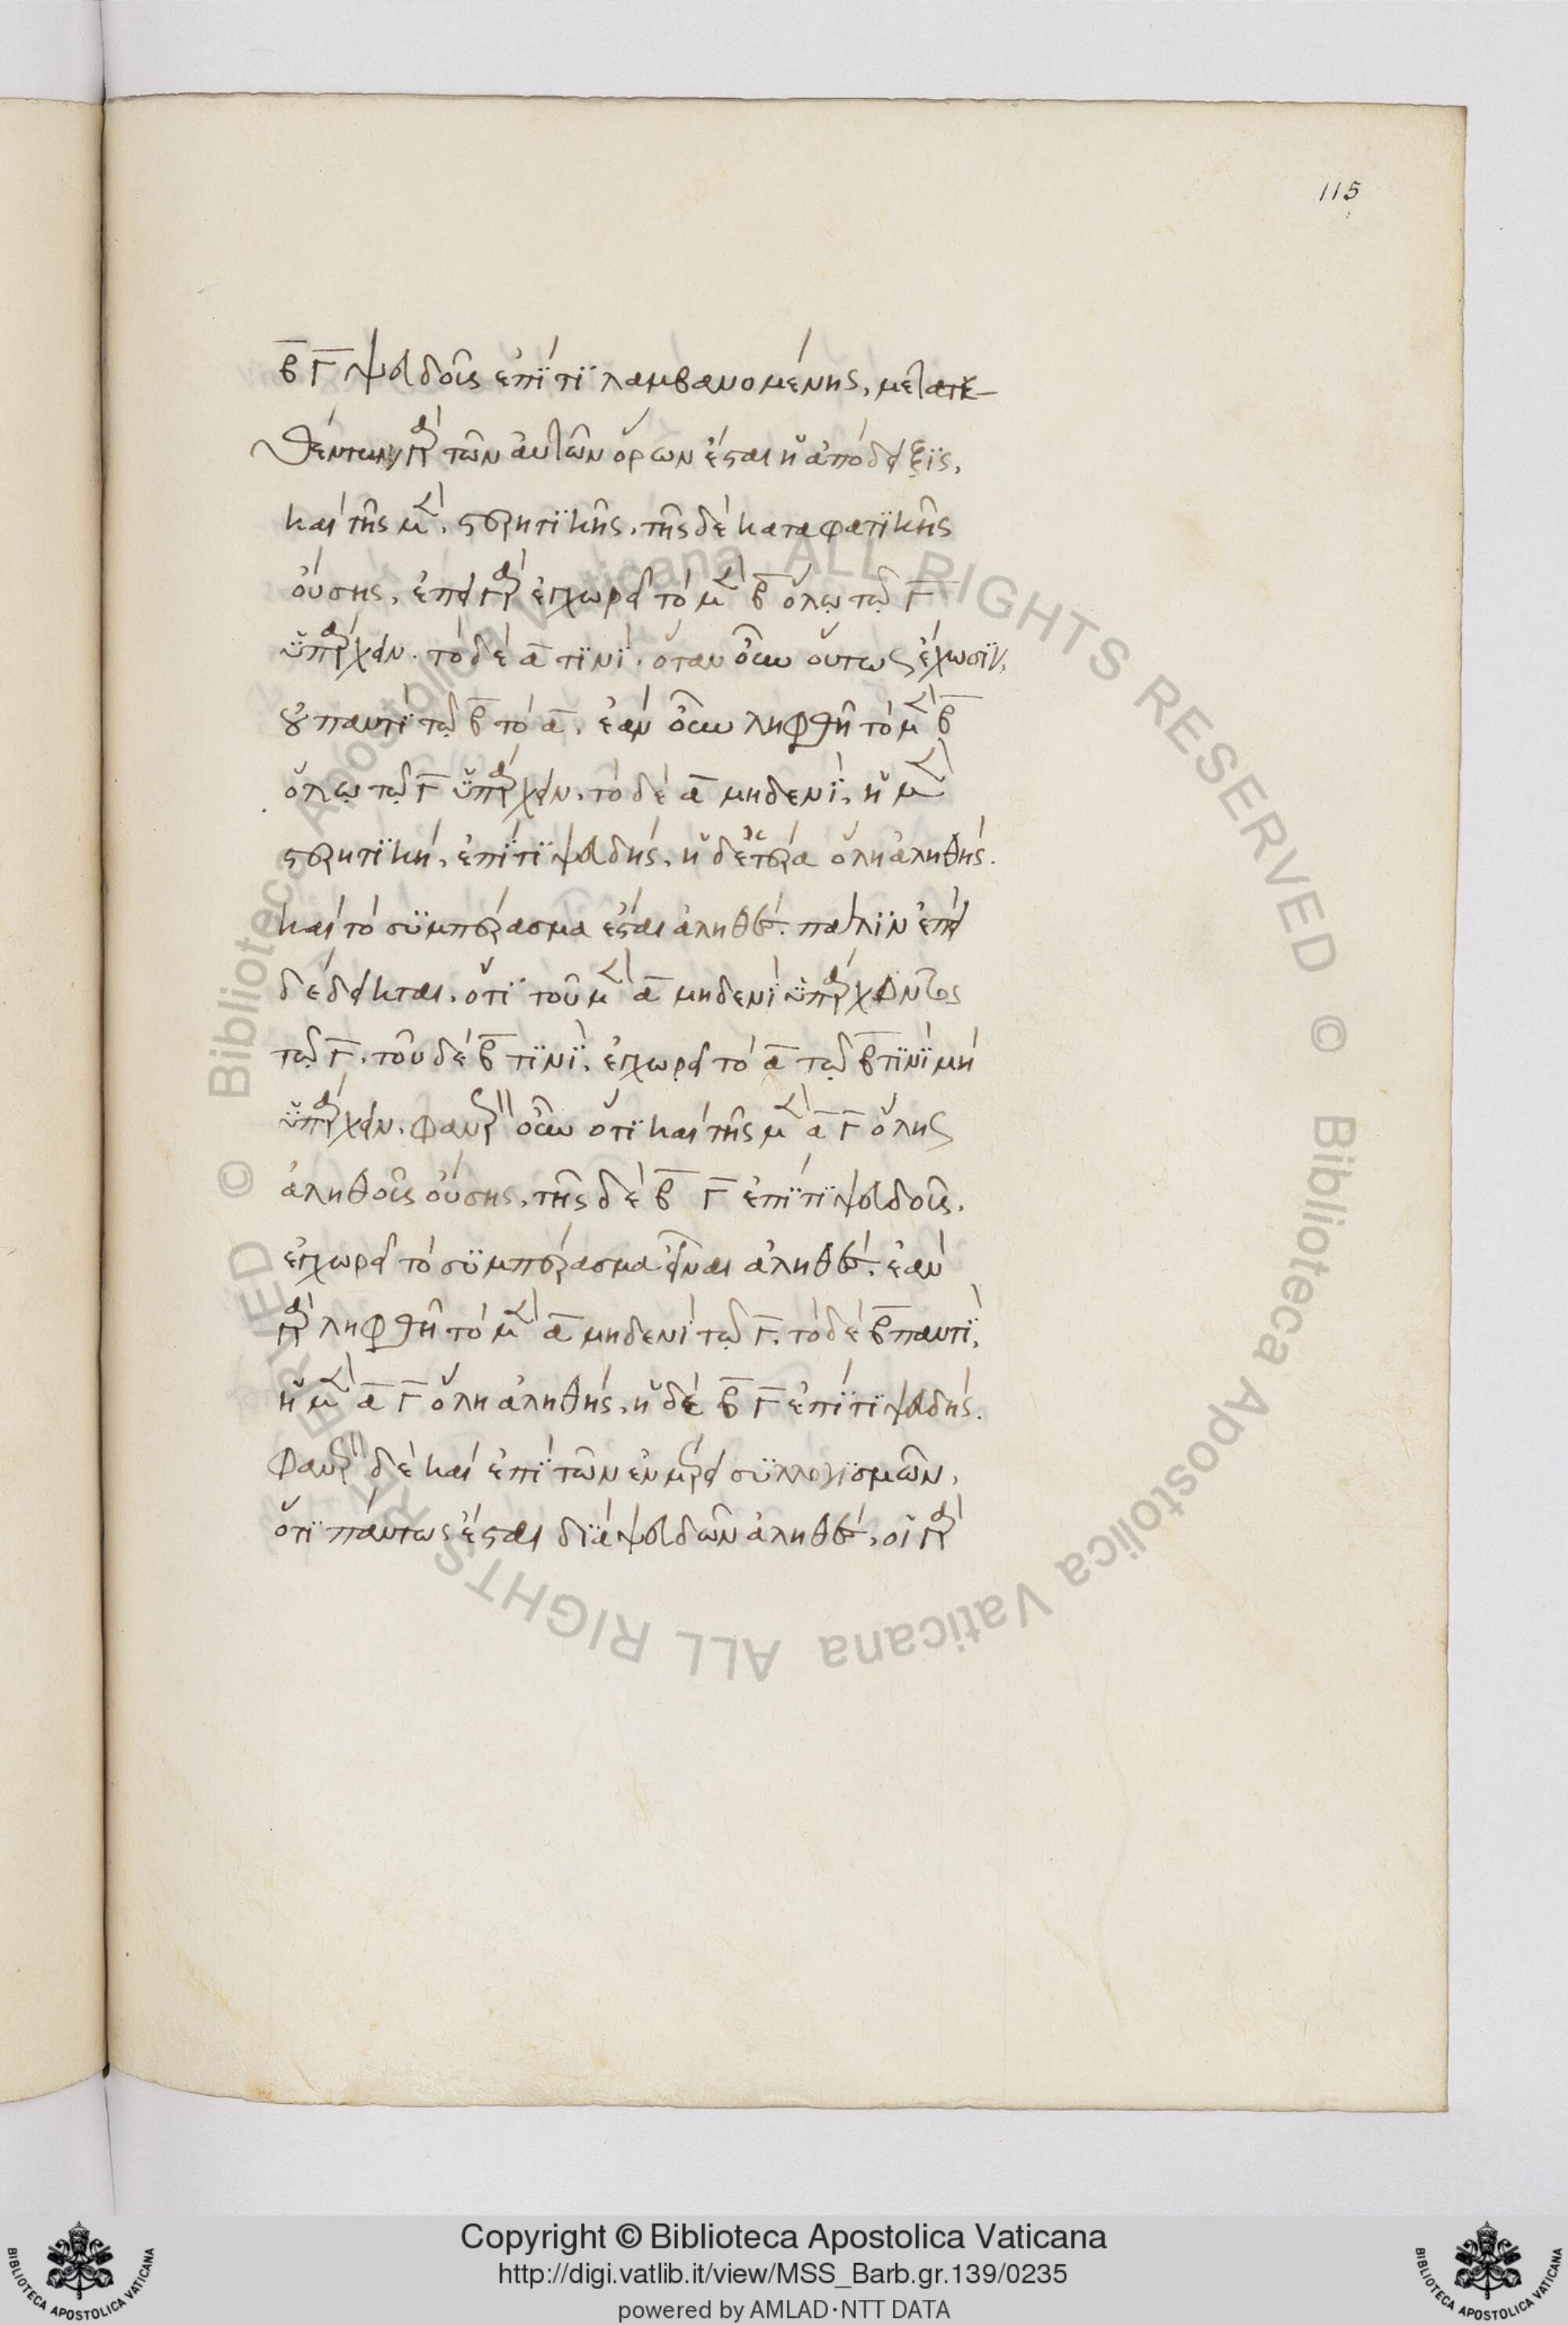 115
β̅ Γ̅ ψευδοῦς ἐπί τι λαμβανομένης, μετατε-
θέντων γὰρ τῶν αὐτῶν ὅρων ἔσται ἡ ἀπόδειξις,
καὶ τῆς μ̅ . στερητικῆς, τῆς δὲ καταφατικῆς
οὔσης, ἐπεὶ γὰρ ἐγχωρεῖ τὸ μ̅ β̅ ὅλῳ τῷ Γ̅
ὑπάρχειν. τὸ δὲ α̅ τινί. ὅταν οὖν οὕτως ἔχωσιν,
οὐ παντὶ τῷ β̅ τὸ α̅. ἐὰν οὖν ληφθῇ τὸ μ̅ β̅
ὅλῳ τῷ Γ̅ ὑπάρχειν, τὸ δὲ α̅ μηδενί, ἡ μ̅
στερητική, ἐπί τι ψευδής, ἡ δὲ ἑτέρα ὅλη ἀληθής.
καὶ τὸ συμπέρασμα ἔσται ἀληθές. πάλιν ἐπεὶ
δέδεικται, ὅτι τοῦ μ̅ α̅ μηδενὶ ὑπάρχοντος
τῷ Γ̅, τοῦ δὲ β̅ τινί, ἐγχωρεῖ τὸ α̅ τῷ β̅ τινὶ μὴ
ὑπάρχειν. φανερὸν οὖν ὅτι καὶ τῆς μ̅ α̅ Γ̅ ὅλης
ἀληθοῦς οὔσης, τῆς δὲ β̅ Γ̅ ἐπί τι ψευδοῦς,
ἐγχωρεῖ τὸ συμπέρασμα εἶναι ἀληθές. ἐὰν
γὰρ ληφθῇ τὸ μ̅ α̅ μηδενὶ τῷ Γ̅, τὸ δὲ β̅ παντί,
ἡ μ̅ α̅ Γ̅ ὅλη ἀληθής, ἡ δὲ β̅ Γ̅ ἐπί τι ψευδής.
Φανερὸν δὲ καὶ ἐπὶ τῶν ἐν μέρει συλλογισμῶν,
ὅτι πάντως ἔσται διὰ ψευδῶν ἀληθές, οἱ γὰρ
© Biblioteca Apostolica Vaticana ALL RIGHTS RESERVED © Biblioteca Apostolica Vaticana ALL RIGHTS RESERVED
Copyright © Biblioteca Apostolica Vaticana
http://digi.vatlib.it/view/MSS_Barb.gr.139/0235
powered by AMLAD·NTT DATA
BIBLIOTECA APOSTOLICA VATICANA
BIBLIOTECA APOSTOLICA VATICANA